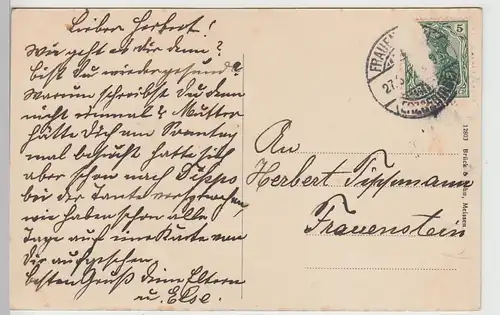 Lieber Herbert!
Wie geht es dir denn?
bist du wieder gesund?
Warum schreibst du denn
nicht einmal? Mutter
hätte dich am Sonntag
mal besucht hatte sich
aber schon nach
bei der Tante versprochen,
wir haben schon alle
Tage auf eine Karte von
dir aufgesehen.
besten Gruß deine Eltern
u. Else.
FRAUEN
27.
(ERZGEBIRGE)
5
An
Herbert Tippmann
Frauenstein
12603 Brück & Sohn, Meissen